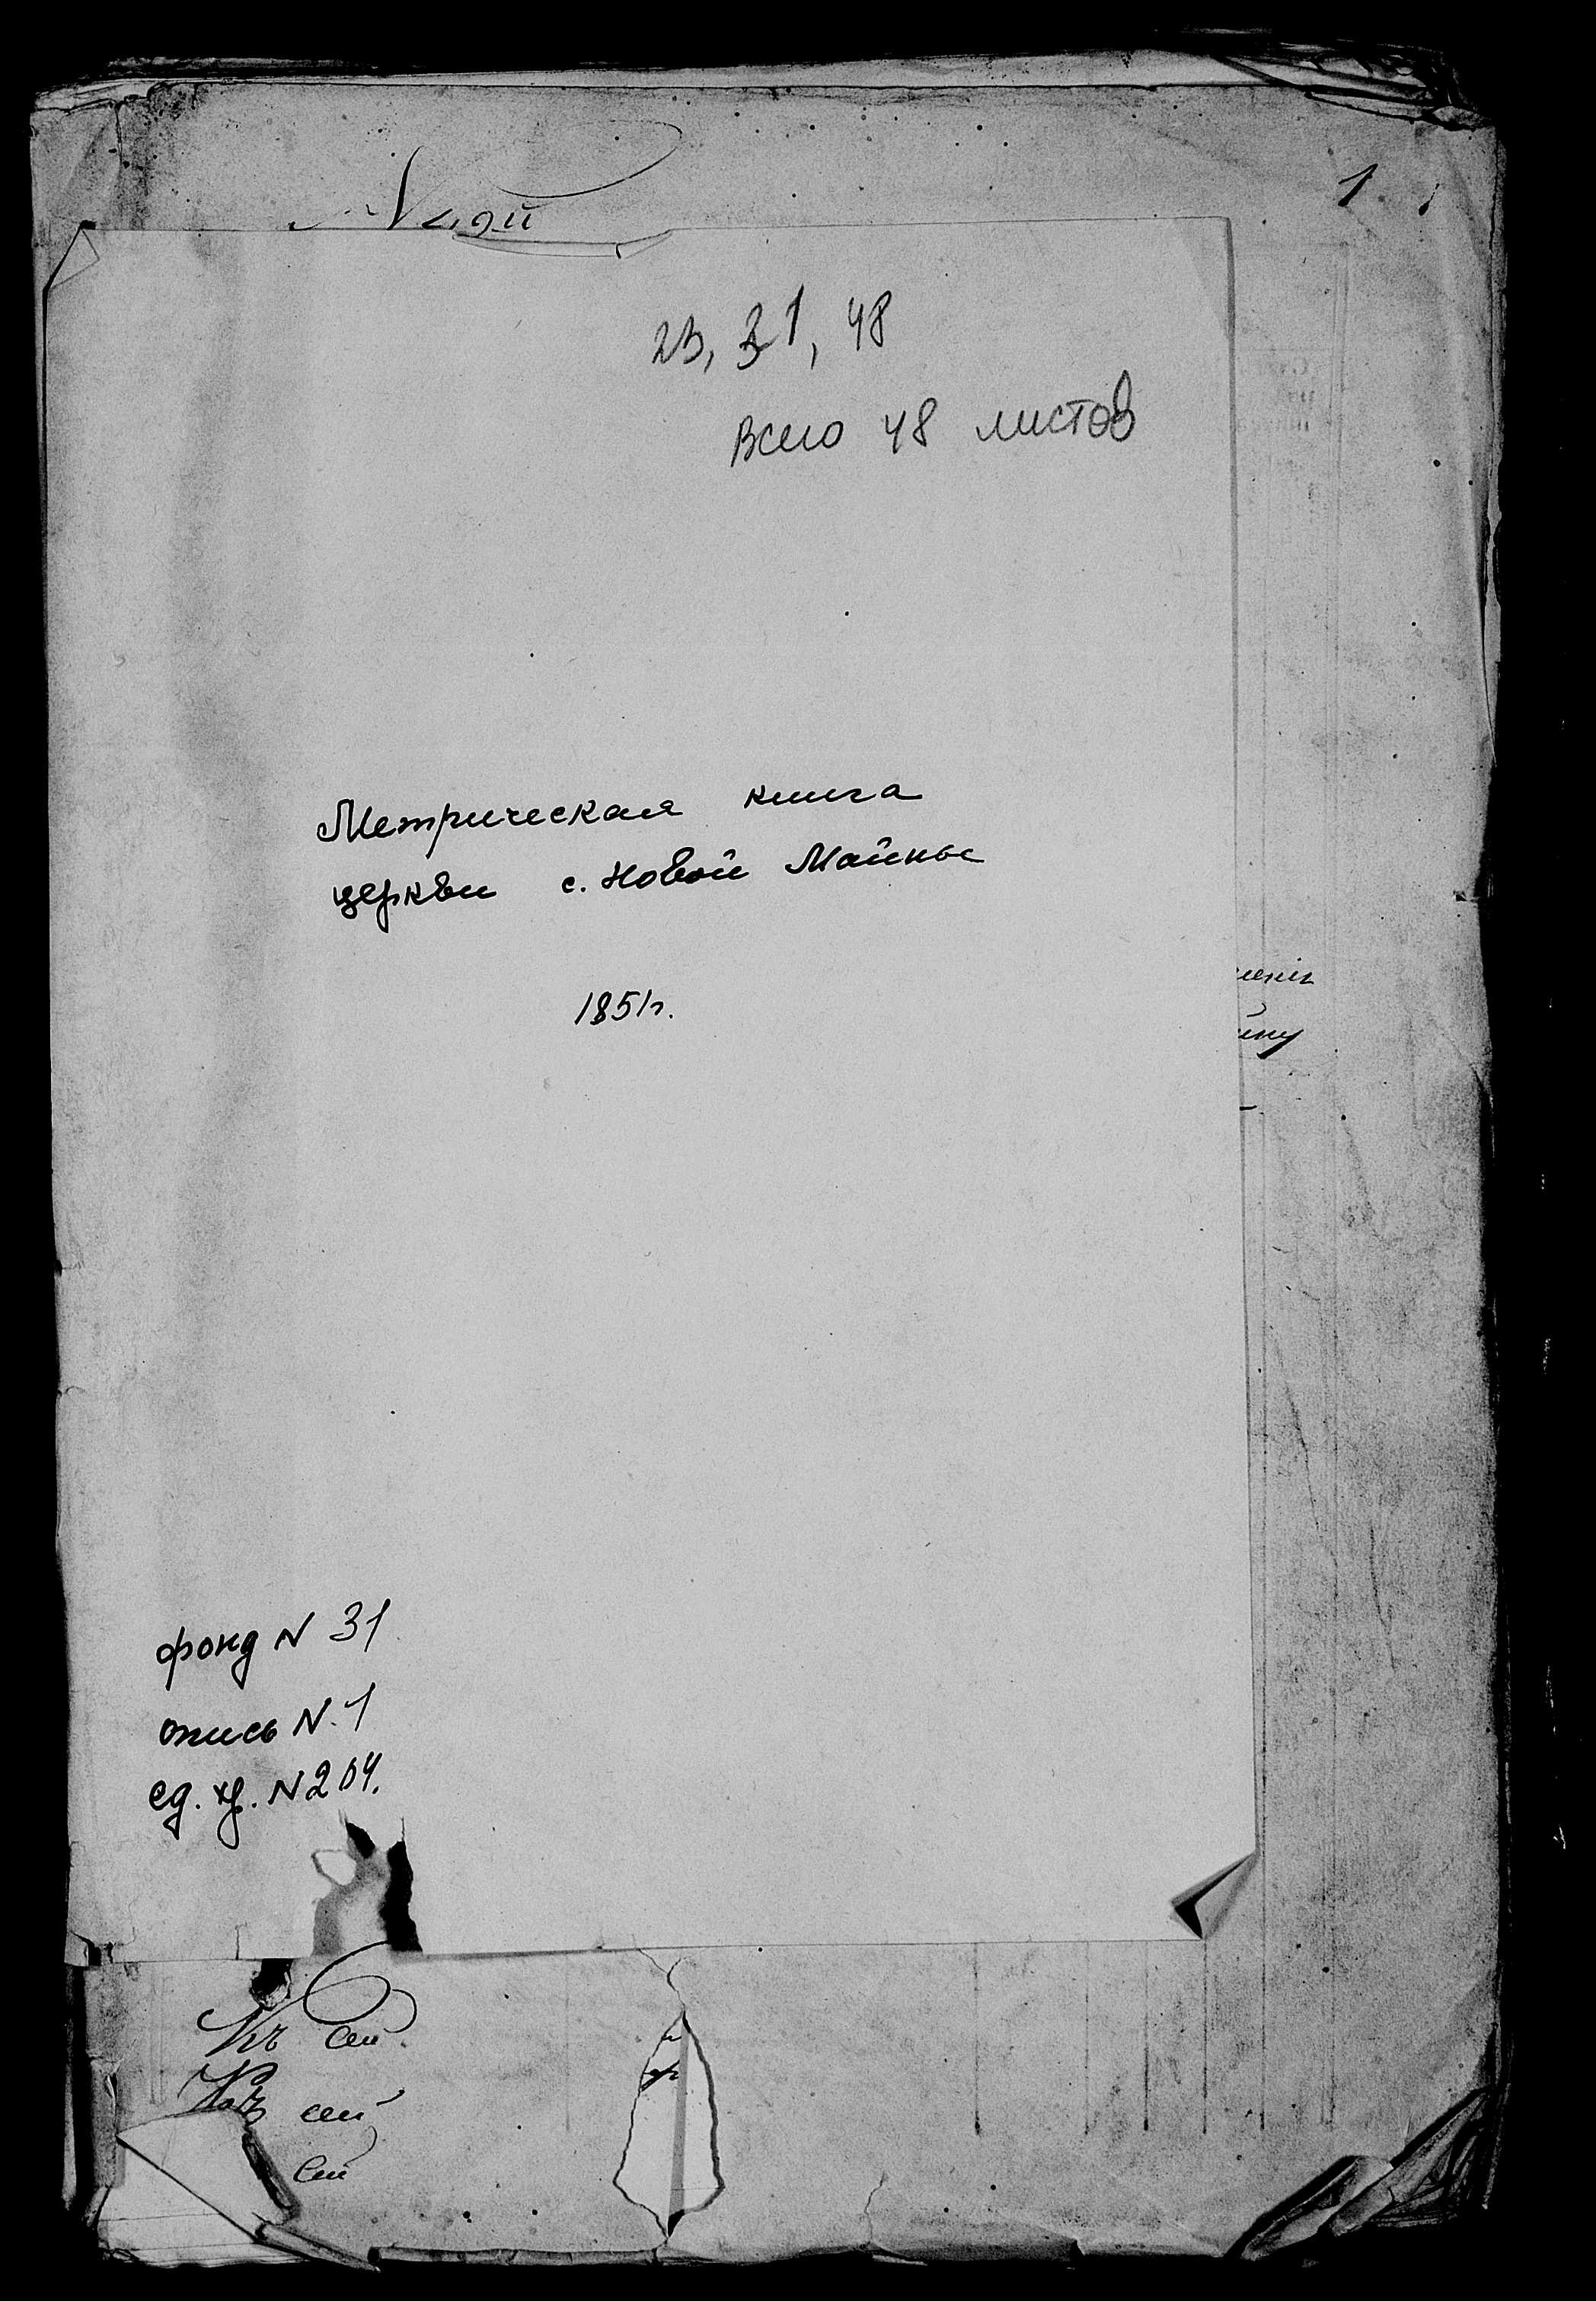 1
23, 31, 48
всего 48 листов
Метрическая книга
церкви с. Новой Майны
1851г.
фонд N 31
опись N. 1
ед. хр. N 204.
Къ сей
Къ сей
сей